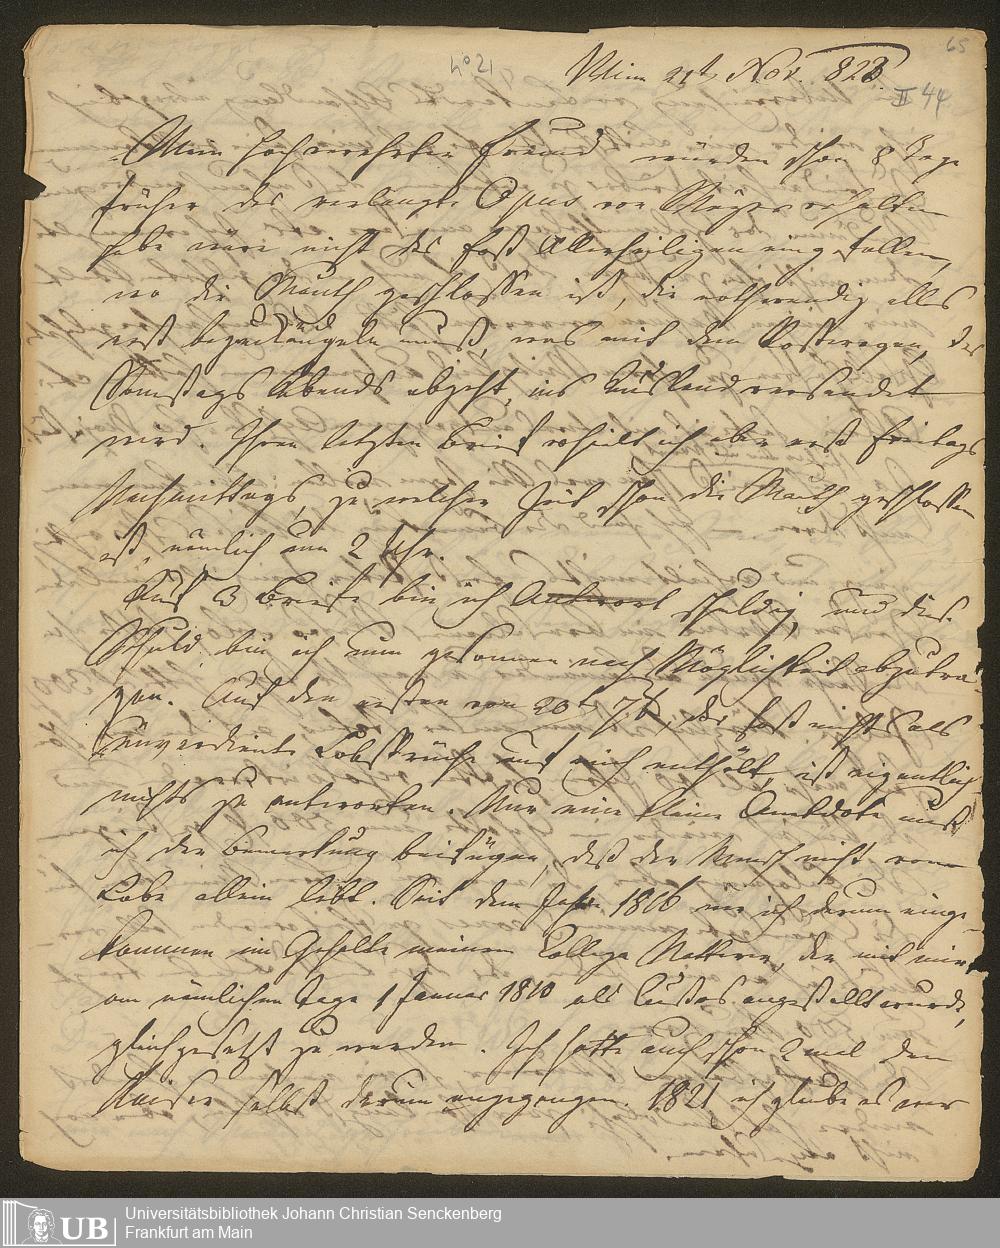 65
No 21
Wien 21t Nov. 823.
II 44
Mein hochverehrter Freund würden schon 8 Tage
früher das verlangte Opus von erhalten
habe wäre nicht das Fest Allerheiligen eingefallen,
wo die Mauth geschlossen ist, die nothwendig alles
erst muß, was mit dem Postwagen, der
Samstags Abends abgeht, ins Ausland versendet
wird. Ihren letzten Brief erhielt ich aber erst Freitags
Nachmittags, zu welcher Zeit schon die Mauth geschlossen
ist, nämlich um 2 Uhr.
Auf 3 Briefe bin ich Antwort schuldig, und diese
Schuld bin ich nun gesonnen nach Möglichkeit abzutra-
gen. Auf den ersten vom 20t 7b, der fast nichts als
unverdiente Lobsprüche auf mich enthält, ist eigentlich
nichts zu antworten. Nur eine kleine Anekdote muß
ich der Bemerkung beifügen, daß der Mensch nicht vom
Lobe allein lebt. Seit dem Jahre 1816 war ich darum einge-
kommen im Gehalte meinem Collega Natterer, der mit mir
am nämlichen Tage 1 Januar 1810 als Custos angestellt wurde,
gleichgesetzt zu werden. Ich hatte auch schon 2 mal den
Kaiser selbst darum angegangen. 1821 ich glaube es war
UB
Universitätsbibliothek Johann Christian Senckenberg
Frankfurt am Main